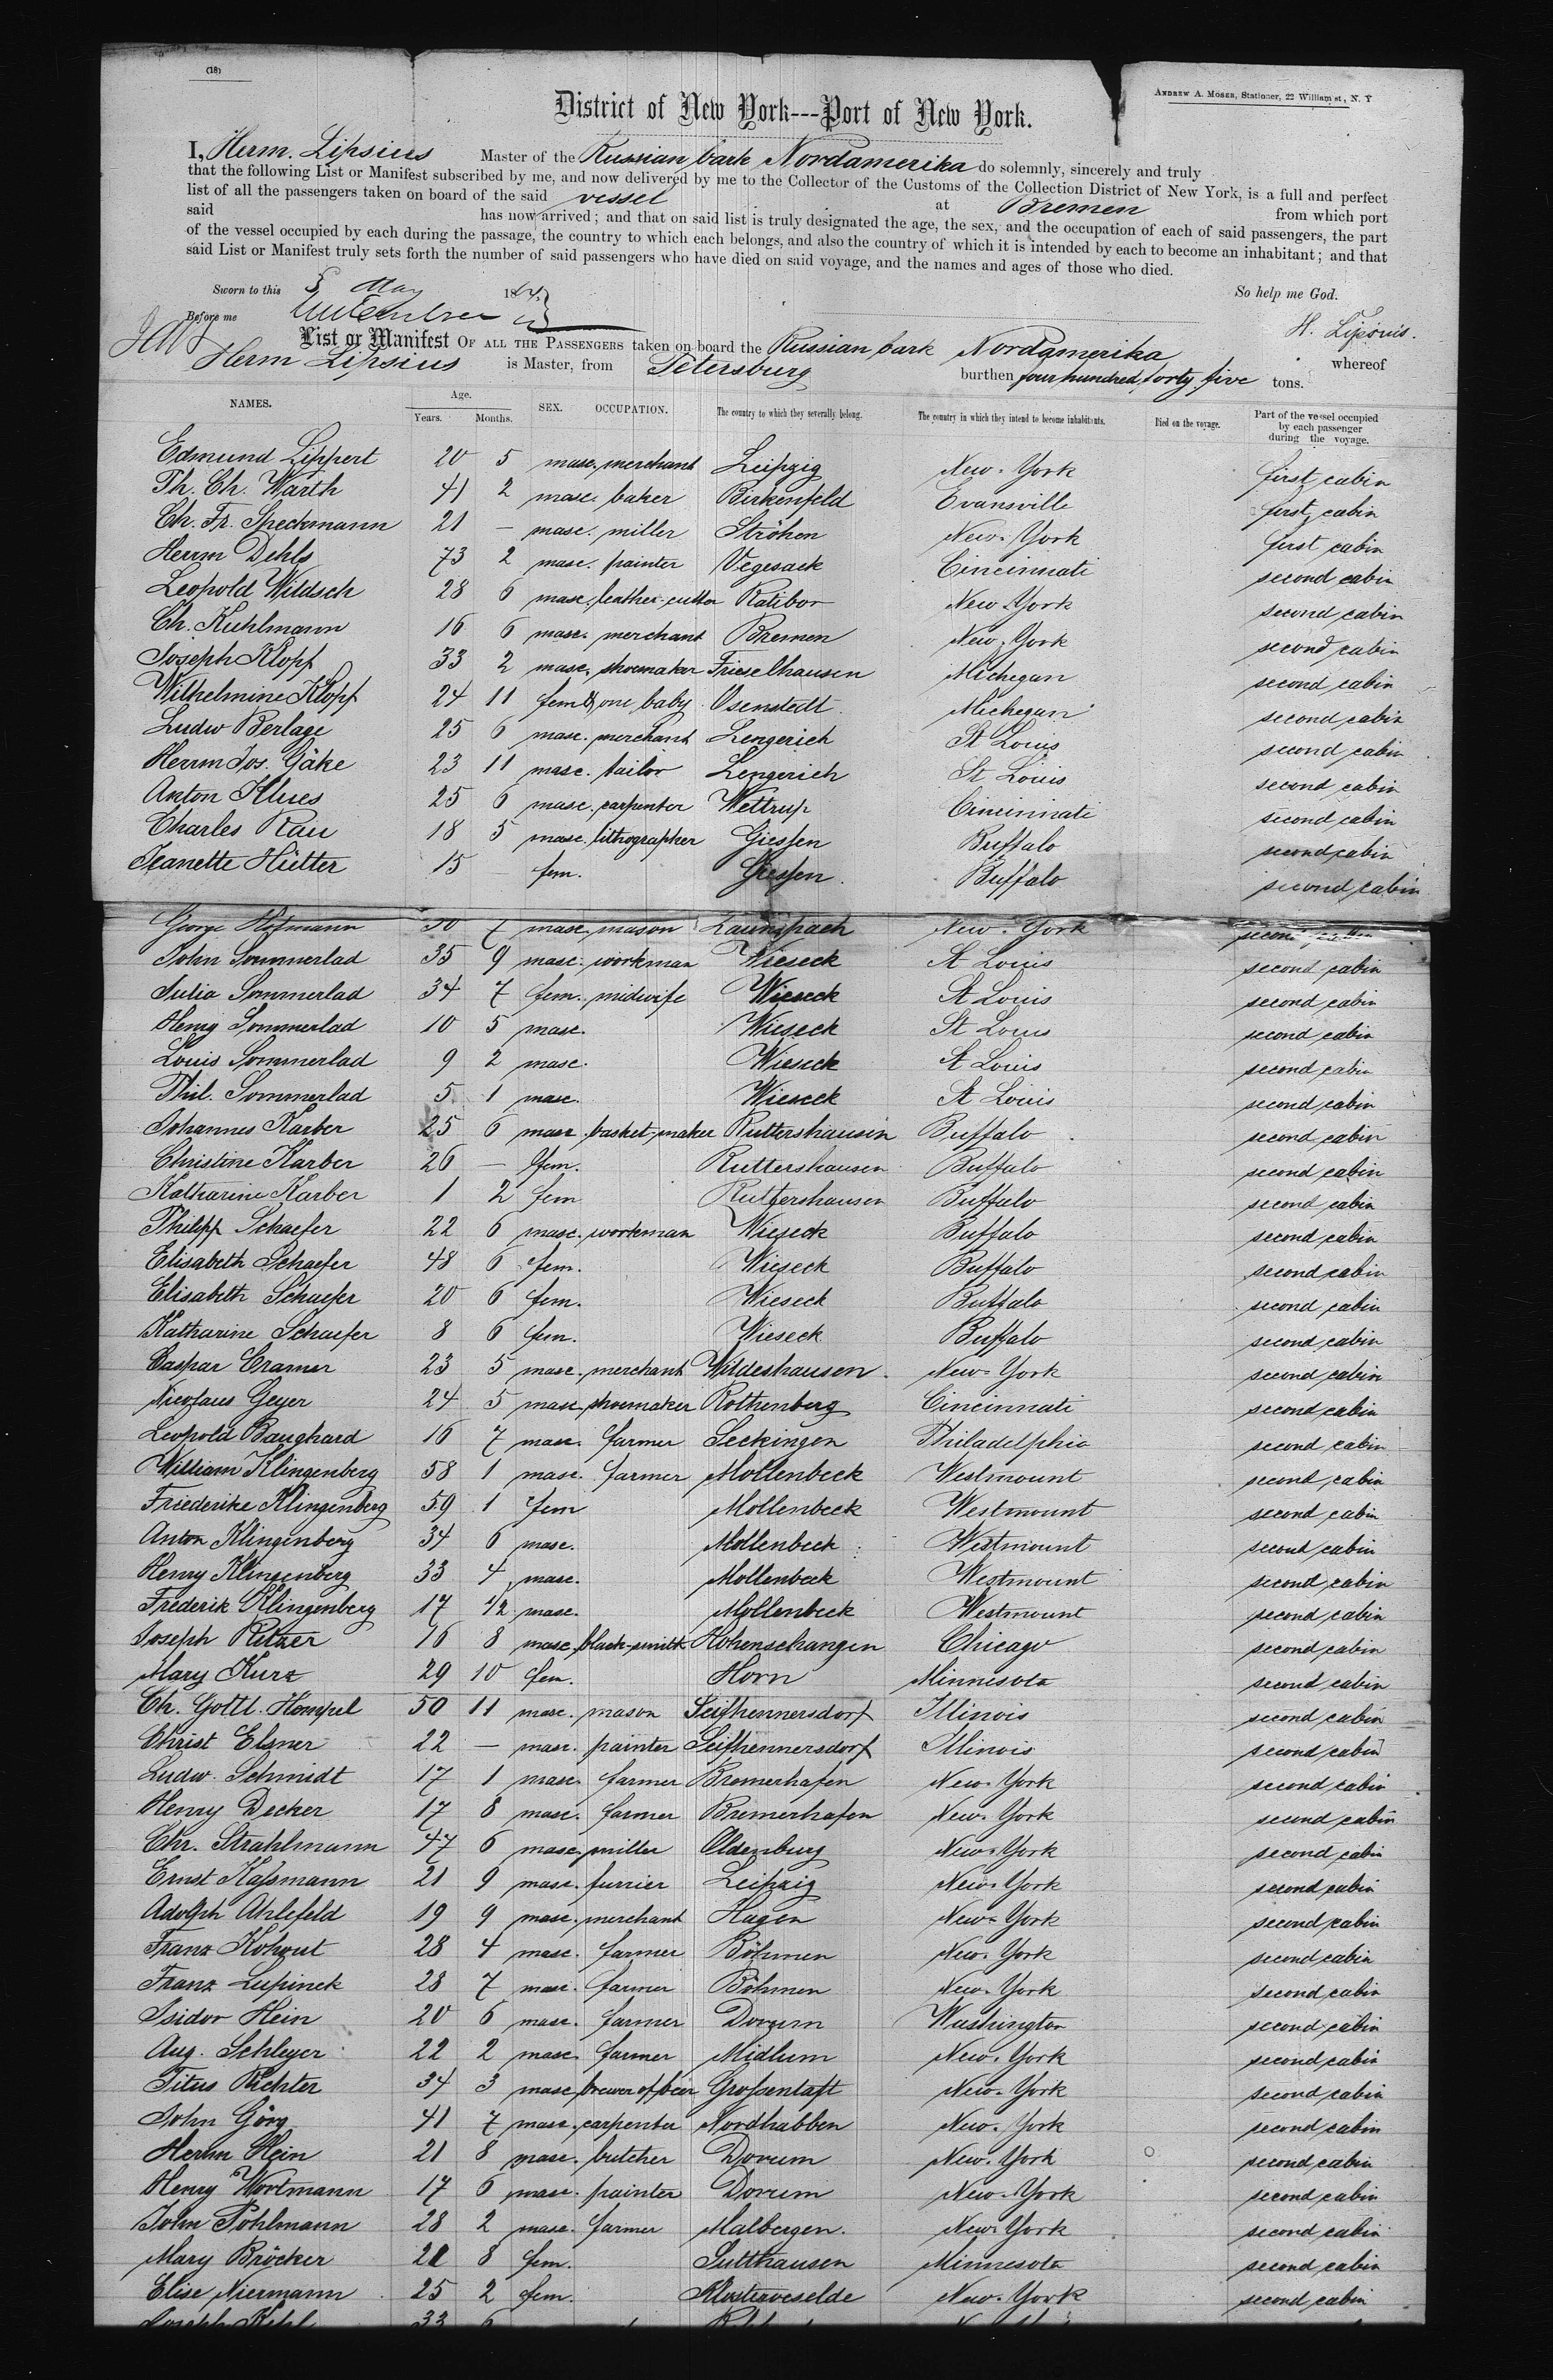 (18)
ANDREW A. MOSER, Stationer, 22 William st, N. Y
District of New York---Port of New York.
I, Herm. Lipsius Master of the Russian bark Nordamerika do solemnly, sincerely and truly
that the following List or Manifest subscribed by me, and now delivered by me to the Collector of the Customs of the Collection District of New York, is a full and perfect
list of all the passengers taken on board of the said vessel at Bremen from which port
said has now arrived; and that on said list is truly designated the age, the sex, and the occupation of each of said passengers, the part
of the vessel occupied by each during the passage, the country to which each belongs, and also the country of which it is intended by each to become an inhabitant; and that
said List or Manifest truly sets forth the number of said passengers who have died on said voyage, and the names and ages of those who died.
Sworn to this 5 May 18 So help me God.
Before me H. Lipsius.
List or Manifest OF ALL THE PASSENGERS taken on board the Russian bark Nordamerika whereof
Herm Lipsius is Master, from Petersburg burthen four hundred forty five tons.
NAMES. Age. Years. Months. SEX. OCCUPATION. The country to which they severally belong. The country in which they intend to become inhabitants. Died on the voyage. Part of the vessel occupied by each passenger during the voyage.
Edmund Lippert 20 5 masc. merchant Leipzig New-York first cabin
Th. Ch. Warth 41 2 masc. baker Birkenfeld Evansville first cabin
Ch. Fr. Speckmann 21 — masc. miller Ströhen New-York first cabin
Herrm Dehls 73 2 masc. painter Vegesack Cincinnati second cabin
Leopold Wildsch 28 6 masc. leather-cutter Ratibor New-York second cabin
Ch. Kuhlmann 16 6 masc. merchant Bremen New-York second cabin
Joseph Klopf 33 2 masc. shoemaker Frieselhausen Michegan second cabin
Wilhelmine Klopf 24 11 fem & one baby Osenstedt Michegan second cabin
Ludw Berlage 25 6 masc. merchant Lengerich St Louis second cabin
Herrm Jos. Gäke 23 11 masc. tailor Lengerich St Louis second cabin
Anton Klues 25 6 masc. carpenter Wettrup Cincinnati second cabin
Charles Rau 18 5 masc. lithographer Giessen Buffalo second cabin
Jeanette Hütter 15 — fem. Giessen Buffalo second cabin
George Hofmann 30 7 masc. mason Launspach New-York second
John Sommerlad 35 9 masc. workman Wieseck St Louis second cabin
Julia Sommerlad 34 7 fem. midwife Wieseck St Louis second cabin
Henry Sommerlad 10 5 masc. Wieseck St Louis second cabin
Louis Sommerlad 9 2 masc. Wieseck St Louis second cabin
Phil. Sommerlad 5 1 masc. Wieseck St Louis second cabin
Johannes Karber 25 6 masc. basket-maker Ruttershausen Buffalo second cabin
Christine Karber 26 — fem. Ruttershausen Buffalo second cabin
Katharine Karber 1 2 fem Ruttershausen Buffalo second cabin
Philipp Schaefer 22 6 masc. workman Wieseck Buffalo second cabin
Elisabeth Schaefer 48 6 fem. Wieseck Buffalo second cabin
Elisabeth Schaefer 20 6 fem. Wieseck Buffalo second cabin
Katharine Schaefer 8 6 fem. Wieseck Buffalo second cabin
Caspar Cramer 23 5 masc. merchant Wildeshausen New-York second cabin
Nicolaus Geyer 24 5 masc. shoemaker Rothenberg Cincinnati second cabin
Leopold Baughard 16 7 masc. farmer Seckingen Philadelphia second cabin
William Klingenberg 58 1 masc. farmer Mollenbeck Westmount second cabin
Friederike Klingenberg 59 1 fem Mollenbeck Westmount second cabin
Anton Klingenberg 34 6 masc. Mollenbeck Westmount second cabin
Henry Klingenberg 33 4 masc. Mollenbeck Westmount second cabin
Frederik Klingenberg 17 1/2 masc. Mollenbeck Westmount second cabin
Joseph Ritzer 16 8 masc. black-smith Hohenschangen Chicago second cabin
Mary Kurz 29 10 fem. Horn Minnesota second cabin
Ch. Gottl. Hempel 50 11 masc. mason Seifhennersdorf Illinois second cabin
Christ Elsner 22 — masc. painter Seifhennersdorf Illinois second cabin
Ludw. Schmidt 17 1 masc. farmer Bremerhafen New-York second cabin
Henry Decker 17 8 masc. farmer Bremerhafen New-York second cabin
Chr. Strahlmann 47 6 masc. miller Oldenburg New-York second cabin
Ernst Kassmann 21 9 masc. furrier Leipzig New-York second cabin
Adolph Ahlefeld 19 9 masc. merchant Hagen New-York second cabin
Franz Kohout 28 4 masc. farmer Böhmen New-York second cabin
Franz Lupinek 28 7 masc. farmer Böhmen New-York second cabin
Isidor Hein 20 6 masc. farmer Dorum Washington second cabin
Aug. Schleyer 22 2 masc. farmer Midlum New-York second cabin
Titus Richter 34 3 masc. brewer of beer Grossentaft New-York second cabin
John Görg 41 7 masc. carpenter Nordhabben New-York second cabin
Herrm Hein 21 8 masc. butcher Dorum New-York second cabin
Henry Wortmann 17 6 masc. painter Dorum New-York second cabin
John Pohlmann 28 2 masc. farmer Malbergen. New-York second cabin
Mary Bröcker 21 8 fem. Sutthausen Minnesota second cabin
Elise Niermann 25 2 fem. New-York second cabin
33 6